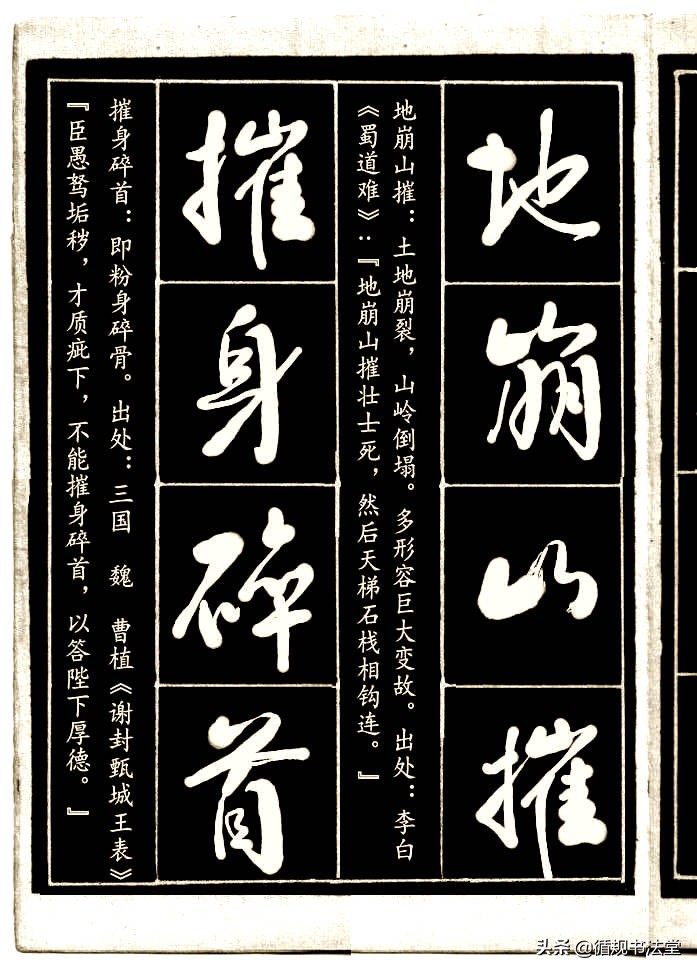 地崩山摧
地崩山摧：土地崩裂，山岭倒塌。多形容巨大变故。出处：李白
《蜀道难》：『地崩山摧壮士死，然后天梯石栈相钩连。』
摧身碎首
摧身碎首：即粉身碎骨。出处：三国 魏 曹植《谢封甄城王表》
『臣愚驽垢秽，才质疵下，不能摧身碎首，以答陛下厚德。』
头条 @循规书法堂